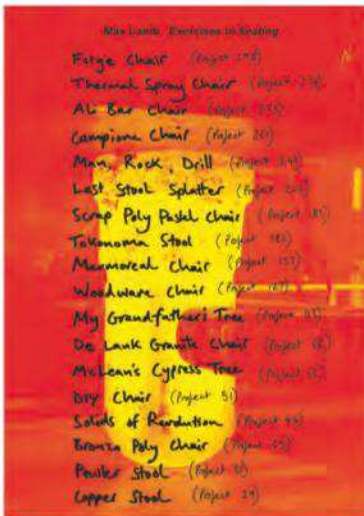 Max Lamb Exercises in Seating
Forge Chair (Project
Thermal Spray Chair (Project
Ali Bar Chair (Project
Campione Chair (Project
Man, Rock, Drill (Project
Last Stool Splatter (Project
Scrap Poly Pastel Chair (Project
Tokonoma Stool (Project
Marmoreal Chair (Project
Woodware Chair (Project
My Grandfather's Tree (Project
De Lank Granite Chair (Project
McLean's Cypress Tree (Project
DIY Chair (Project 51)
Solids of Revolution (Project
Bronze Poly Chair (Project
Pewter Stool (Project
Copper Stool (Project 29)